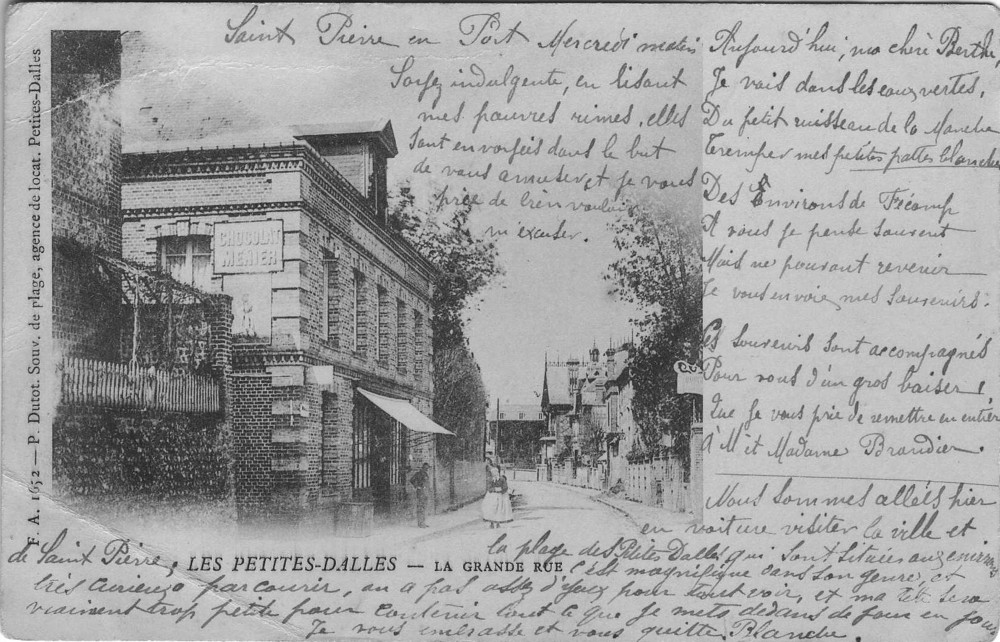 F. A. 1652 — P. Dutot. Souv. de plage, agence de locat. Petites-Dalles
Saint Pierre en Port Mercredi matin
Soyez indulgente, en lisant
mes pauvres rimes, elles
sont envoyées dans le but
de vous amuser, et je vous
prie de bien vouloir
m'excuser.
CHOCOLAT
MENIER
Aujourd'hui, ma chère Berthe,
Je vais dans les eaux vertes,
Du petit ruisseau de la Manche
Tremper mes petites pattes blanches
Des Environs de Fécamp
A vous je pense souvent
Mais ne pouvant revenir
Je vous envoie, mes souvenirs.
Ces souvenirs sont accompagnés
Pour vous d'un gros baiser!
Que je vous prie de remettre en entier
à M et Madame Brandier.
Nous sommes allés hier
en voiture visiter la ville et
la plage des Petites Dalles qui sont situées aux environs
de Saint Pierre, LES PETITES-DALLES — LA GRANDE RUE c'est magnifique dans son genre, et
très curieux à parcourir, on a pas assez d'yeux pour tout voir, et ma tête sera
vraiment trop petite pour contenir tout ce que je mets dedans de jour en jour
Je vous embrasse et vous quitte. Blanche.